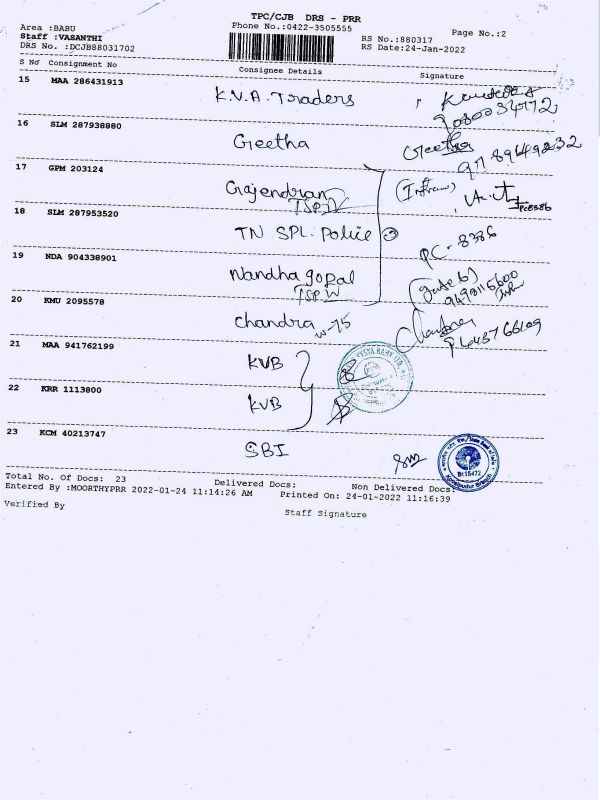 TPC/CJB DRS - PRR
Area :BABU
Phone No.:0422-3505555
Page No.:2
Staff :VASANTHI
RS No.:880317
DRS No. :DCJB88031702
RS Date:24-Jan-2022
S No Consignment No
Consignee Details
Signature
15 MAA 286431913
K.V.A. Traders
16 SLM 287938880
Geetha
Geetha
9789649232
17 GPM 203124
Gajendran
TSP IV
PC8386
18 SLM 287953520
TN SPL. Police
PC - 8386
19 NDA 904338901
Nandha gopal
TSP IV
20 KMU 2095578
Chandra W-75
21 MAA 941762199
KVB
22 KRR 1113800
KVB
23 KCM 40213747
SBI
Br.15472
Total No. of Docs: 23
Delivered Docs:
Non Delivered Docs:
Entered By :MOORTHYPRR 2022-01-24 11:14:26 AM
Printed On: 24-01-2022 11:16:39
Verified By
Staff Signature